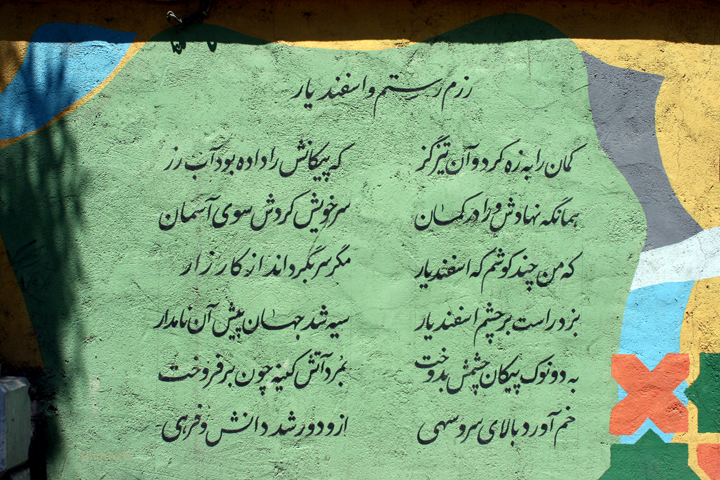 رزم رستم و اسفندیار
کمان را به زه کرد و آن تیر گز که پیکانش را داده بود آب رز
همانگه نهادش ورا در کمان سر خویش کردش سوی آسمان
که من چند کوشم که اسفندیار مگر سر بگرداند از کارزار
بزد راست بر چشم اسفندیار سیه شد جهان پیش آن نامدار
به دو نوک پیکان چشمش بدوخت بمرد آتش کینه چون برفروخت
خم آورد بالای سرو سهی ازو دور شد دانش و فرهی